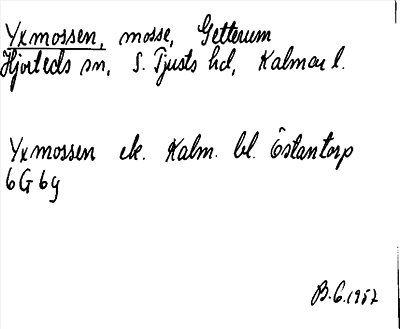 Yxmossen, mosse, Getterum
Hjorteds sn, S. Tjusts hd, Kalmar l.
Yxmossen ek. Kalm. bl. Östantorp
6G 6g
B.G. 1957